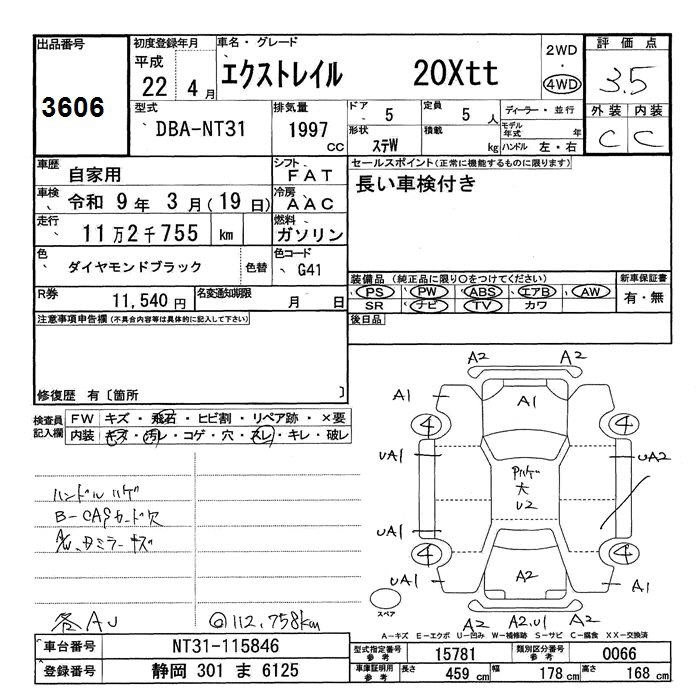 出品番号 初度登録年月 車名・グレード 2WD 評価点
3606 平成 22 年 4月 エクストレイル 20Xtt 4WD 3.5
型式 DBA-NT31 排気量 1997 cc ドア 5 定員 5人 ディーラー・並行 外装 内装
形状 ステW 積載 kg モデル年式 年 ハンドル 左・右 C C
車歴 自家用 シフト FAT セールスポイント(正常に機能するものに限ります)
車検 令和 9年 3月(19日) 冷房 AAC 長い車検付き
走行 11万2千755 km 燃料 ガソリン
色 ダイヤモンドブラック 色替 色コード G41
装備品 (純正品に限り○をつけてください) 新車保証書
R券 11,540円 名変通知期限 月 日 PS PW ABS エアB AW 有・無
SR ナビ TV カワ
注意事項申告欄(不具合内容等は具体的に記入して下さい) 後日品
修復歴 有〔箇所 〕
検査員記入欄 FW キズ・飛石・ヒビ割・リペア跡・×要
内装 キズ・汚レ・コゲ・穴・スレ・キレ・破レ
A2 A2
A1 A1
4 4
UA1 UA2
Pハゲ
大
U2
UA1
4 4
UA1 A2 A1
A2 A2,U1 A2
スペア
ハンドルハゲ
B-CASカード欠
A/W、ミラーキズ
各AU ◎112,758km
A-キズ E-エクボ U-凹み W-補修跡 S-サビ C-腐食 XX-交換済
車台番号 NT31-115846 型式指定番号 参考 15781 類別区分番号 参考 0066
登録番号 静岡 301 ま 6125 車庫証明用 参考 長さ 459 cm 幅 178 cm 高さ 168 cm